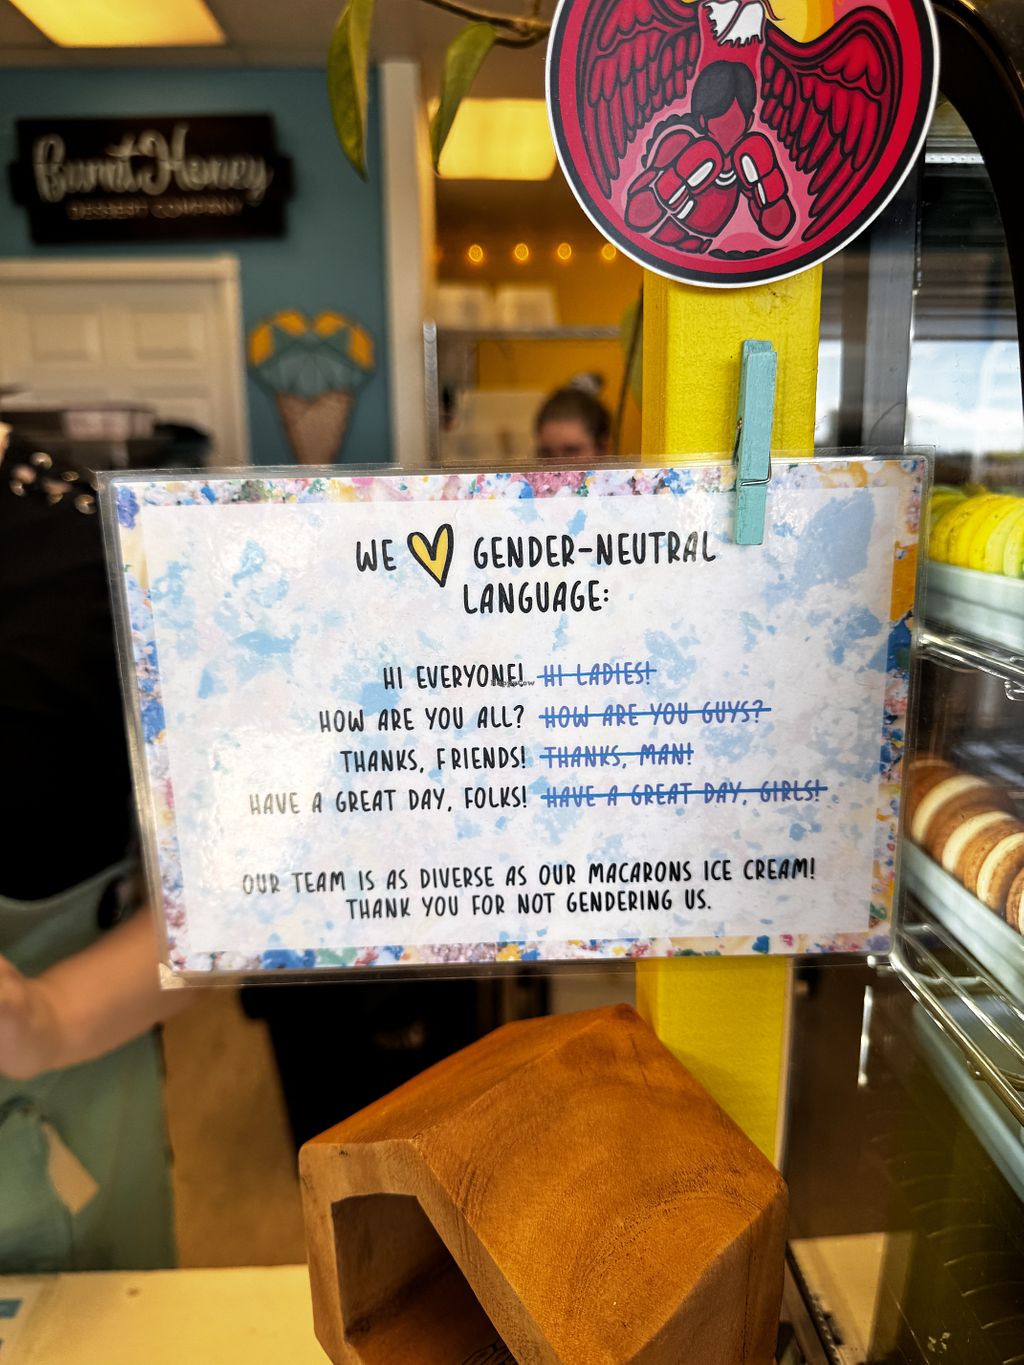 Burnt Honey
DESSERT COMPANY
WE GENDER-NEUTRAL
LANGUAGE:
HI EVERYONE! HI LADIES!
HOW ARE YOU ALL? HOW ARE YOU GUYS?
THANKS, FRIENDS! THANKS, MAN!
HAVE A GREAT DAY, FOLKS! HAVE A GREAT DAY, GIRLS!
OUR TEAM IS AS DIVERSE AS OUR MACARONS ICE CREAM!
THANK YOU FOR NOT GENDERING US.